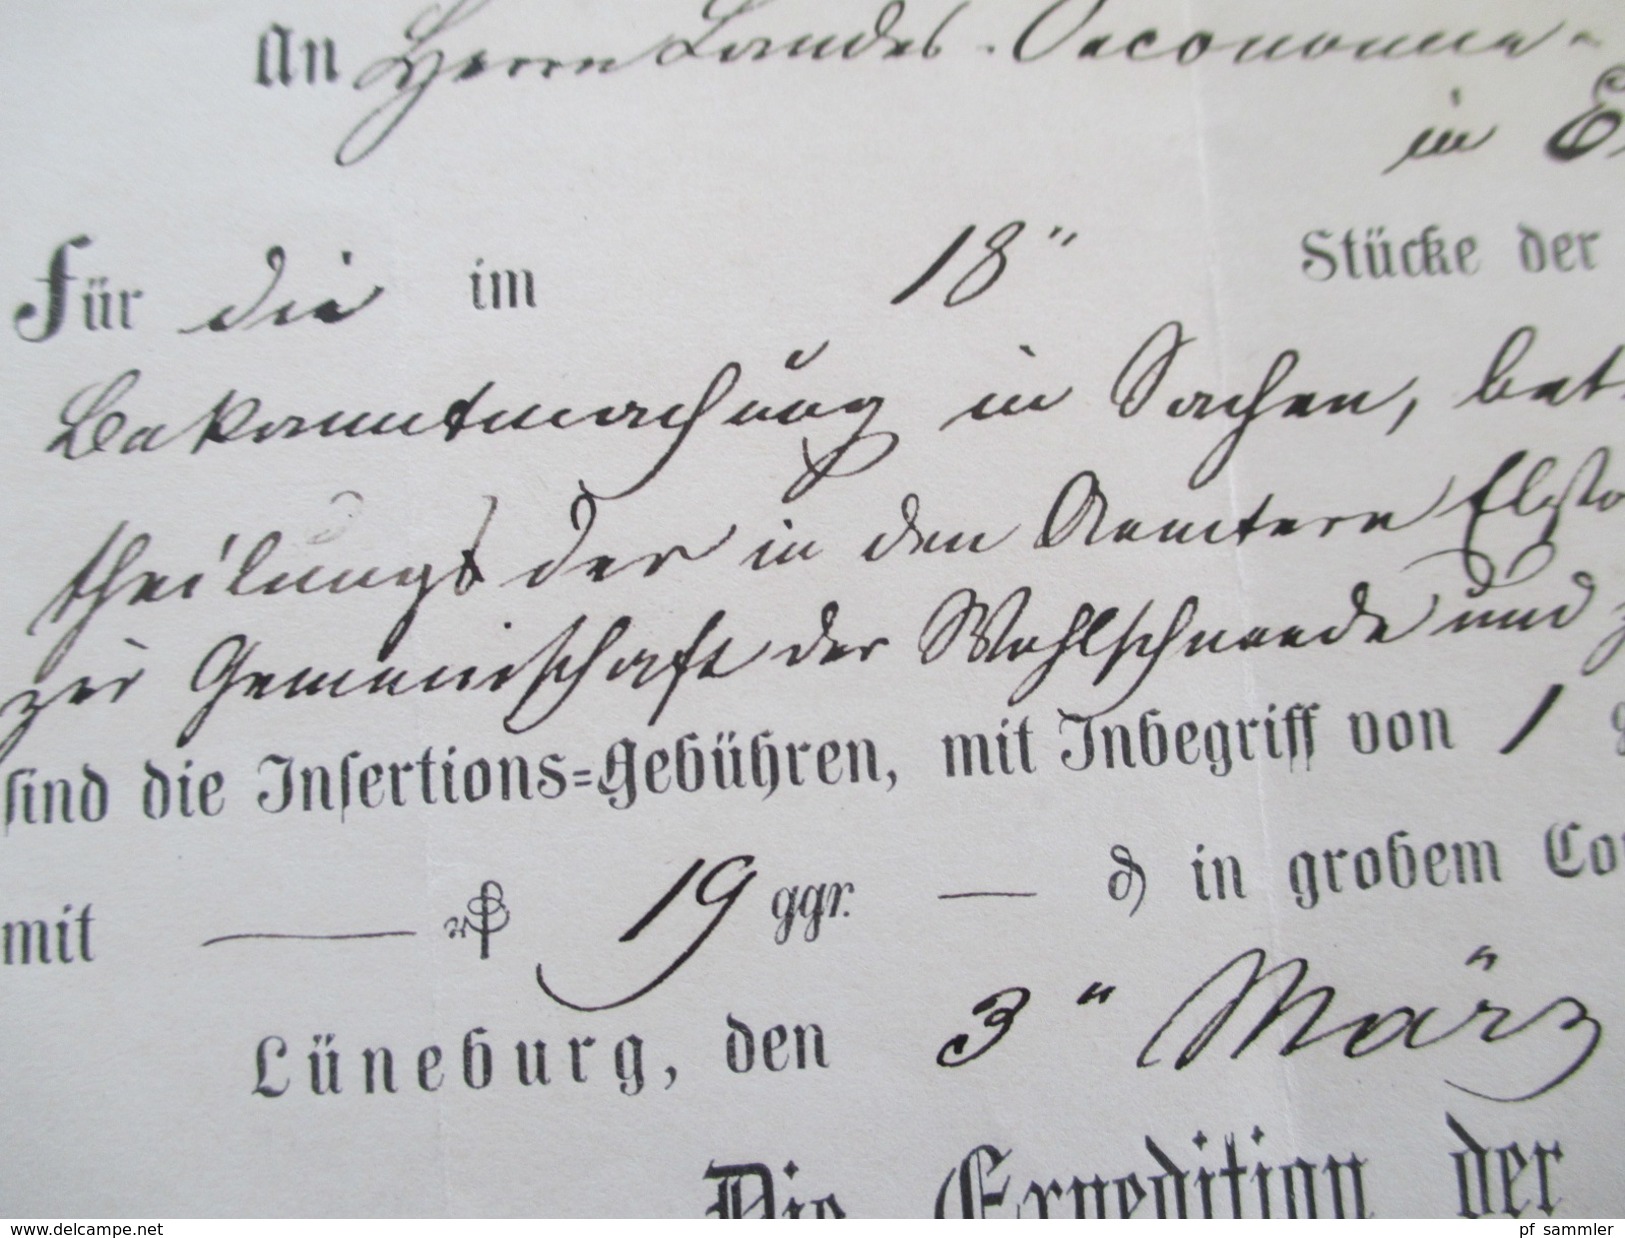 An Herrn Landes-Oeconomie-
in E
Für die im 18" Stücke der
Bekanntmachung in Sachen, bet
theilungs der in den Aemtern Elsto
zur Gemeinschaft der Wohlschneede und z
sind die Insertions=Gebühren, mit Inbegriff von 1 g
mit — 19 ggr. — in grobem Co
Lüneburg, den 3" März
Die Expedition der
www.delcampe.net
pf_sammler